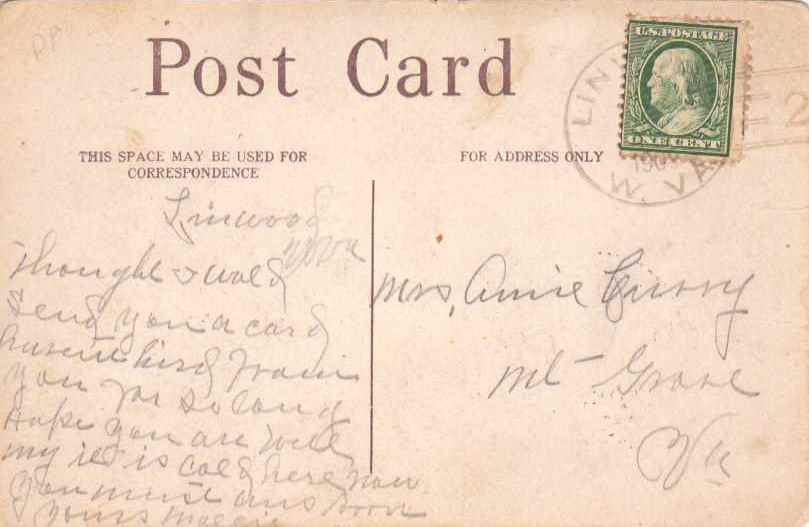 Post Card
U.S. POSTAGE
ONE CENT
LIN
W. VA
190
2
THIS SPACE MAY BE USED FOR
CORRESPONDENCE
FOR ADDRESS ONLY
Linwood
W Va
Thought I wold
Send you a card
havent hird from
you for so long
Hope you are well
my it is cold here now
you must ans soon
yours Maggie
Mrs, Annie Curry
Mt Grove
Va